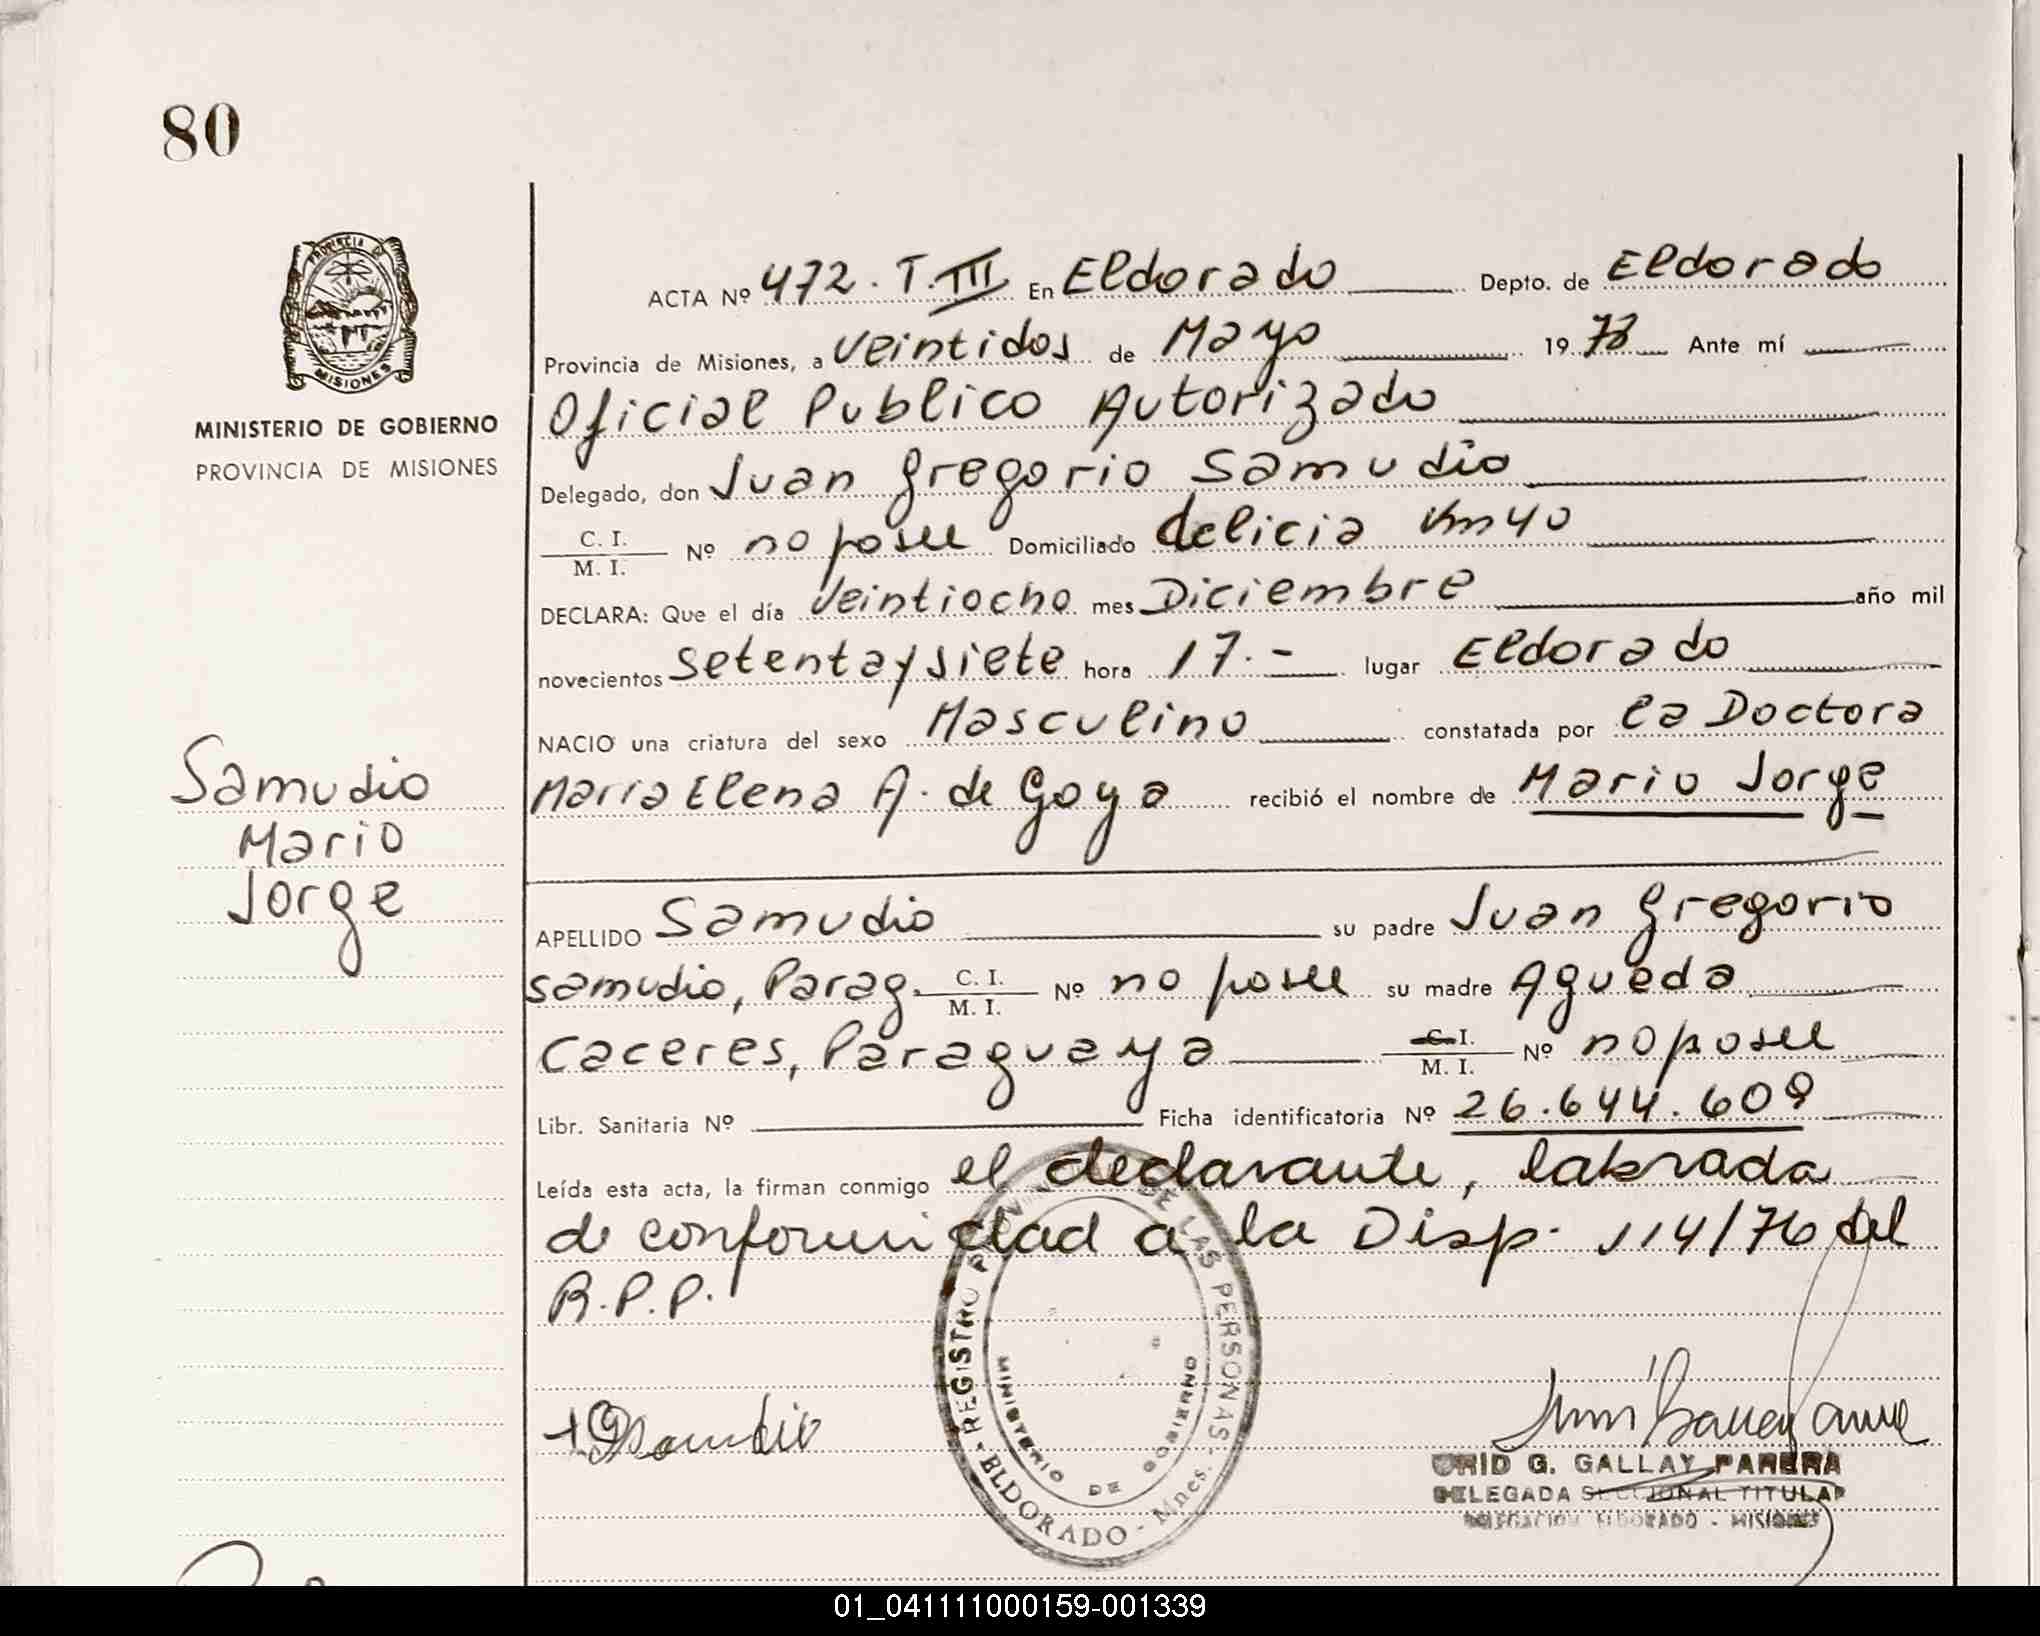 80
PROVINCIA DE
MISIONES
MINISTERIO DE GOBIERNO
PROVINCIA DE MISIONES
Samudio
Mario
Jorge
ACTA Nº 472. T. III En Eldorado Depto. de Eldorado
Provincia de Misiones, a veintidos de Mayo 1978 Ante mí
Oficial Publico Autorizado
Delegado, don Juan Gregorio Samudio
C. I.
M. I. Nº no posee Domiciliado delicia Km 40
DECLARA: Que el día veintiocho mes Diciembre año mil
novecientos setenta y siete hora 17.- lugar Eldorado
NACIO una criatura del sexo Masculino constatada por la Doctora
Maria Elena A. de Goya recibió el nombre de Mario Jorge
APELLIDO Samudio su padre Juan Gregorio
samudio, Parag. C. I.
M. I. Nº no posee su madre Agueda
Caceres, Paraguaya C. I.
M. I. Nº no posee
Libr. Sanitaria Nº Ficha identificatoria Nº 26.644.609
Leída esta acta, la firman conmigo el declarante, labrada
de conformidad a la Disp. 114/76 del
R.P.P.
REGISTRO DE LAS PERSONAS - ELDORADO - Mnes.
MINISTERIO DE GOBIERNO
Samudio
G. GALLAY PARERA
DELEGADA SECCIONAL TITULAR
DELEGACION ELDORADO - MISIONES
01_041111000159-001339